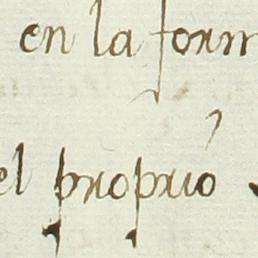 en la form
el proprio